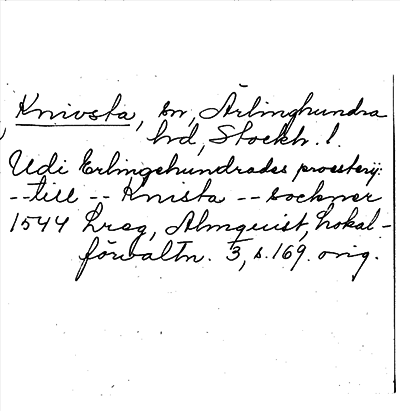 Knivsta, sn, Ärlinghundra
hd, Stockh. l.
Udi Erlingehundrades proesterij:
-- till -- Knista -- sockner
1544 Lreg, Almquist, Lokal-
förvaltn. 3, s. 169. orig.